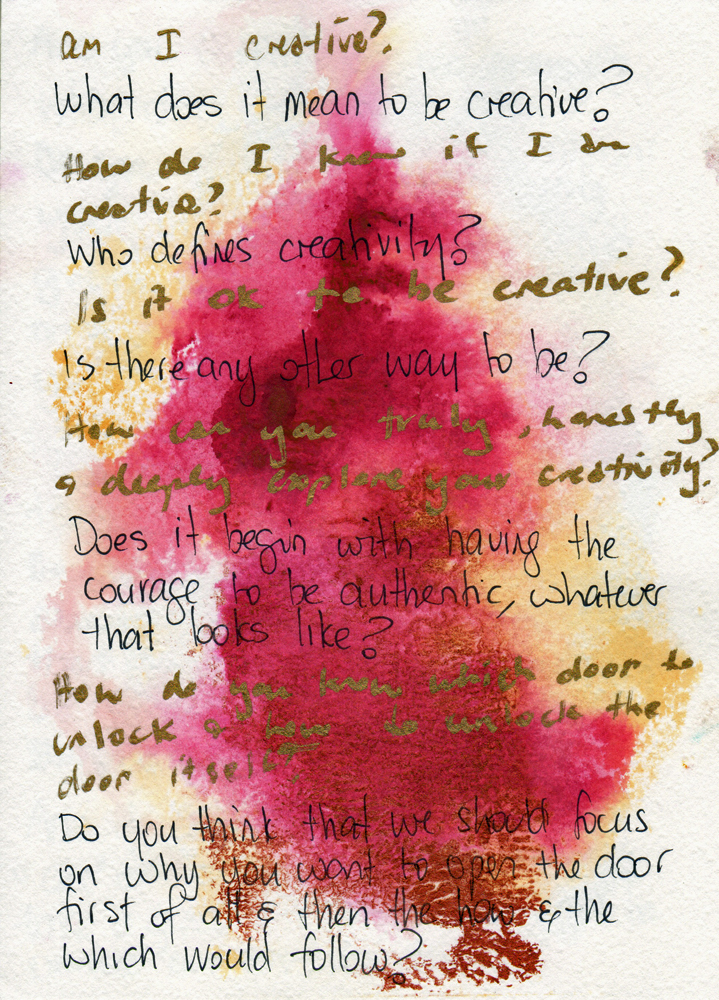 am I creative?
What does it mean to be creative?
How do I know if I am
creative?
Who defines creativity?
Is it ok to be creative?
Is there any other way to be?
How can you truly, honestly
& deeply explore your creativity?
Does it begin with having the
courage to be authentic, whatever
that looks like?
How do you know which door to
unlock & how to unlock the
door itself?
Do you think that we should focus
on why you want to open the door
first of all & then the how & the
which would follow?